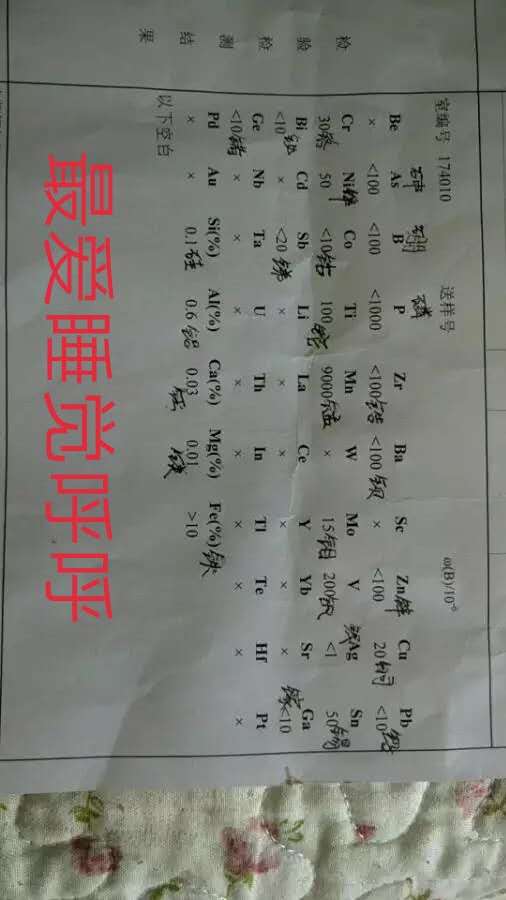 室编号 174010 送样号 ω(B)/10⁻⁶
砷 硼 磷
Be As B P Zr Ba Sc Zn锌 Cu Pb
× <100 <100 <1000 <100锆 <100钡 × <100 20铜 <10铅
Cr Ni镍 Co Ti Mn W Mo V 银Ag Sn
30铬 50 <10钴 100 9000锰 × 15钼 200钒 <1 50锡
Bi Cd Sb Li La Ce Y Yb Sr Ga
<10铋 × <20锑 × × × × × × 镓<10
Ge Nb Ta U Th In Tl Te Hf Pt
<10锗 × × × × × × × × ×
Pd Au Si(%) Al(%) Ca(%) Mg(%) Fe(%)铁
× × 0.1硅 0.6铝 0.03钙 0.01镁 >10
以下空白
检验检测结果
最爱睡觉呼呼